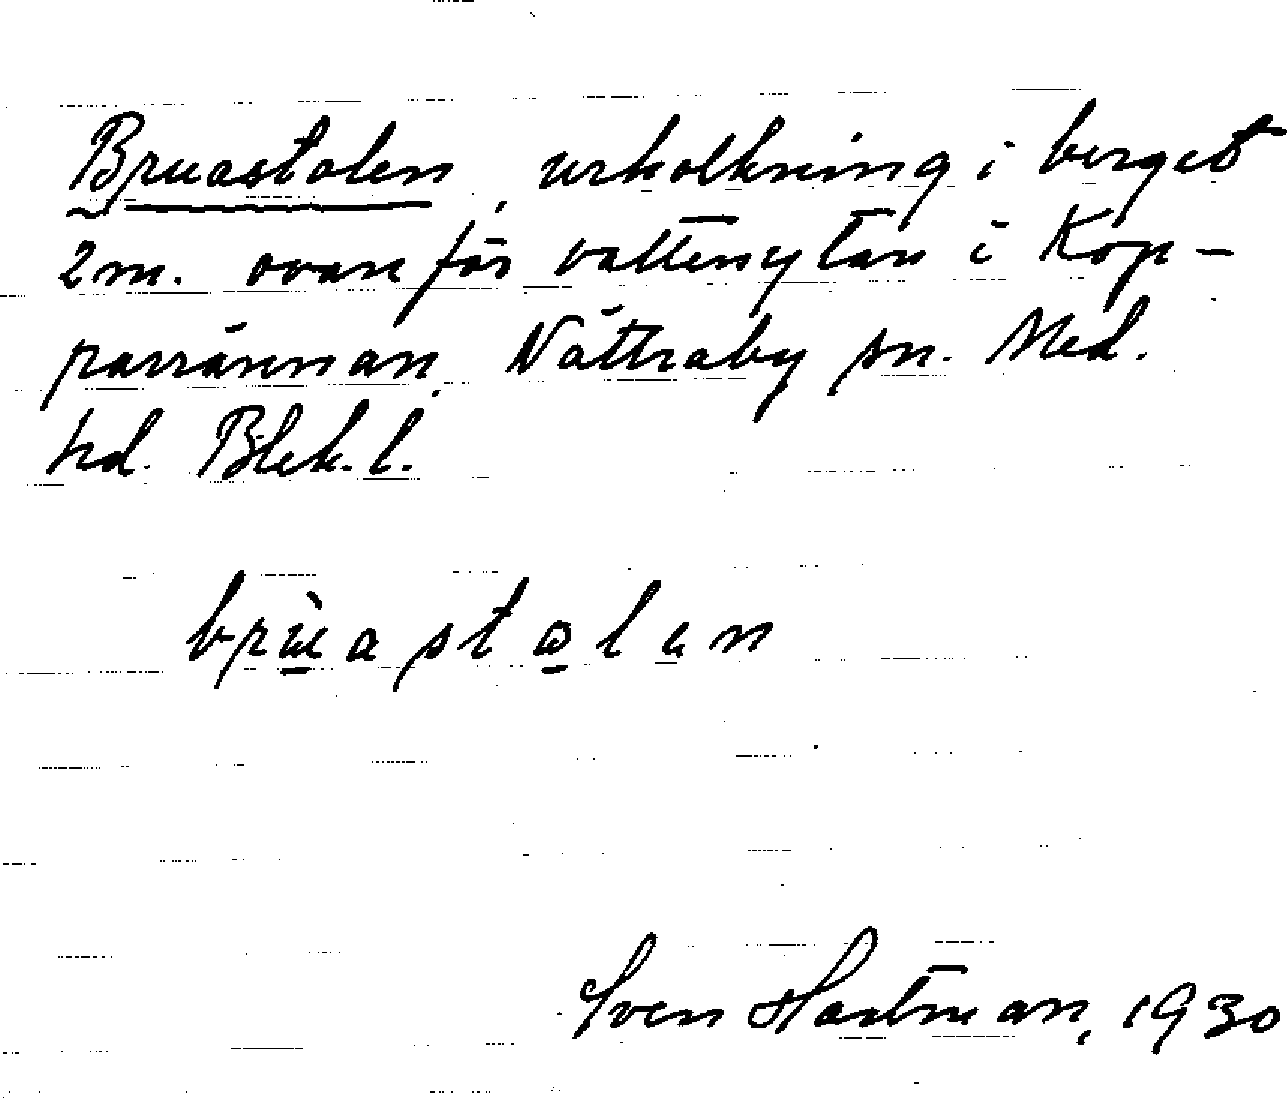 Bruastolen, urholkning i berget
2 m. ovanför vattenytan i Kop-
parrännan, Nättraby sn. Med.
hd. Blek. l.
Sven Hartman, 1930